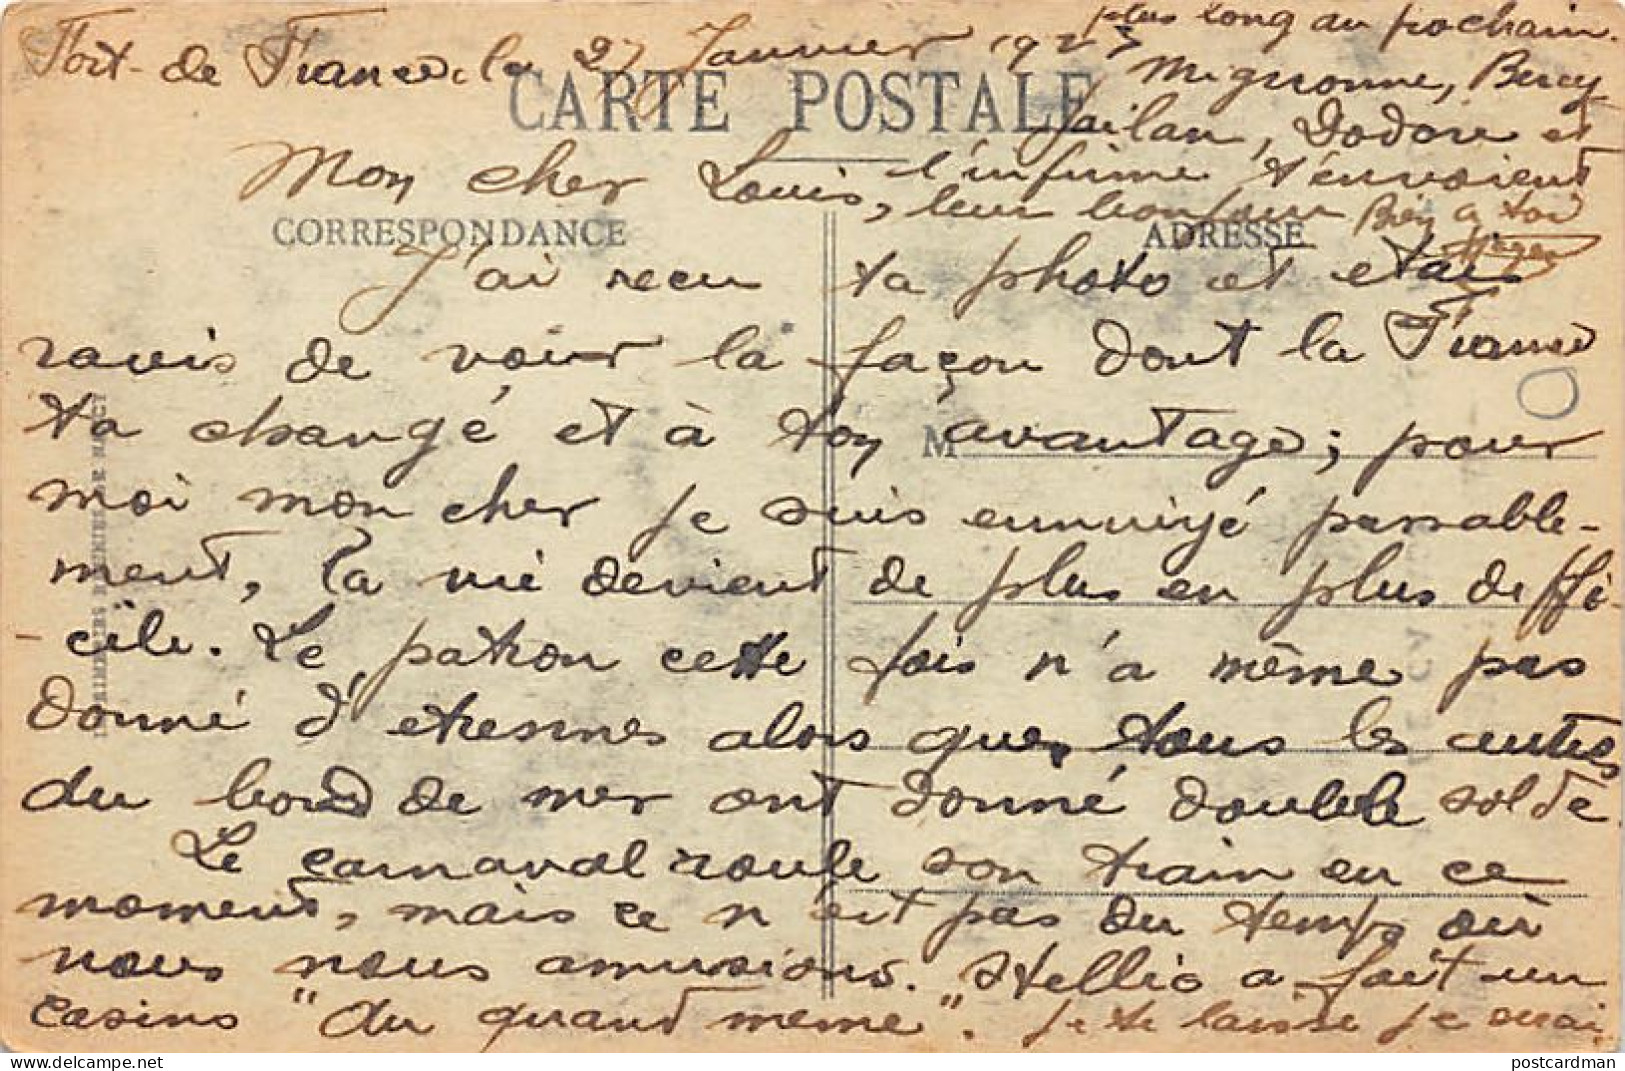 Fort-de France, le 27 Janvier 192
CARTE POSTALE
Mon cher Louis,
CORRESPONDANCE
ADRESSE
J'ai recu ta photo et etais
ravis de voir la façon dont la France
ta changé et à ton avantage; pour
M
moi mon cher je suis ennuiyé passable-
ment, la vie devient de plus en plus deffi-
cile. Le patron cette fois n'a même pas
donné d'etrennes alors que, tous les autres
du bord de mer ont donné double solde
Le carnaval roule son train en ce
moment, mais ce n'est pas du temps où
nous nous amusions. Stellio a fait un
casino "du quand meme". Je te laisse je serai
plus long au prochain.
Mignonne, Bercy
Jailan, Dodore et
l'infirme t'envoient
leur bonjour Bien a toi
IMPRIMERIES REUNIES DE NANCY
postcardman